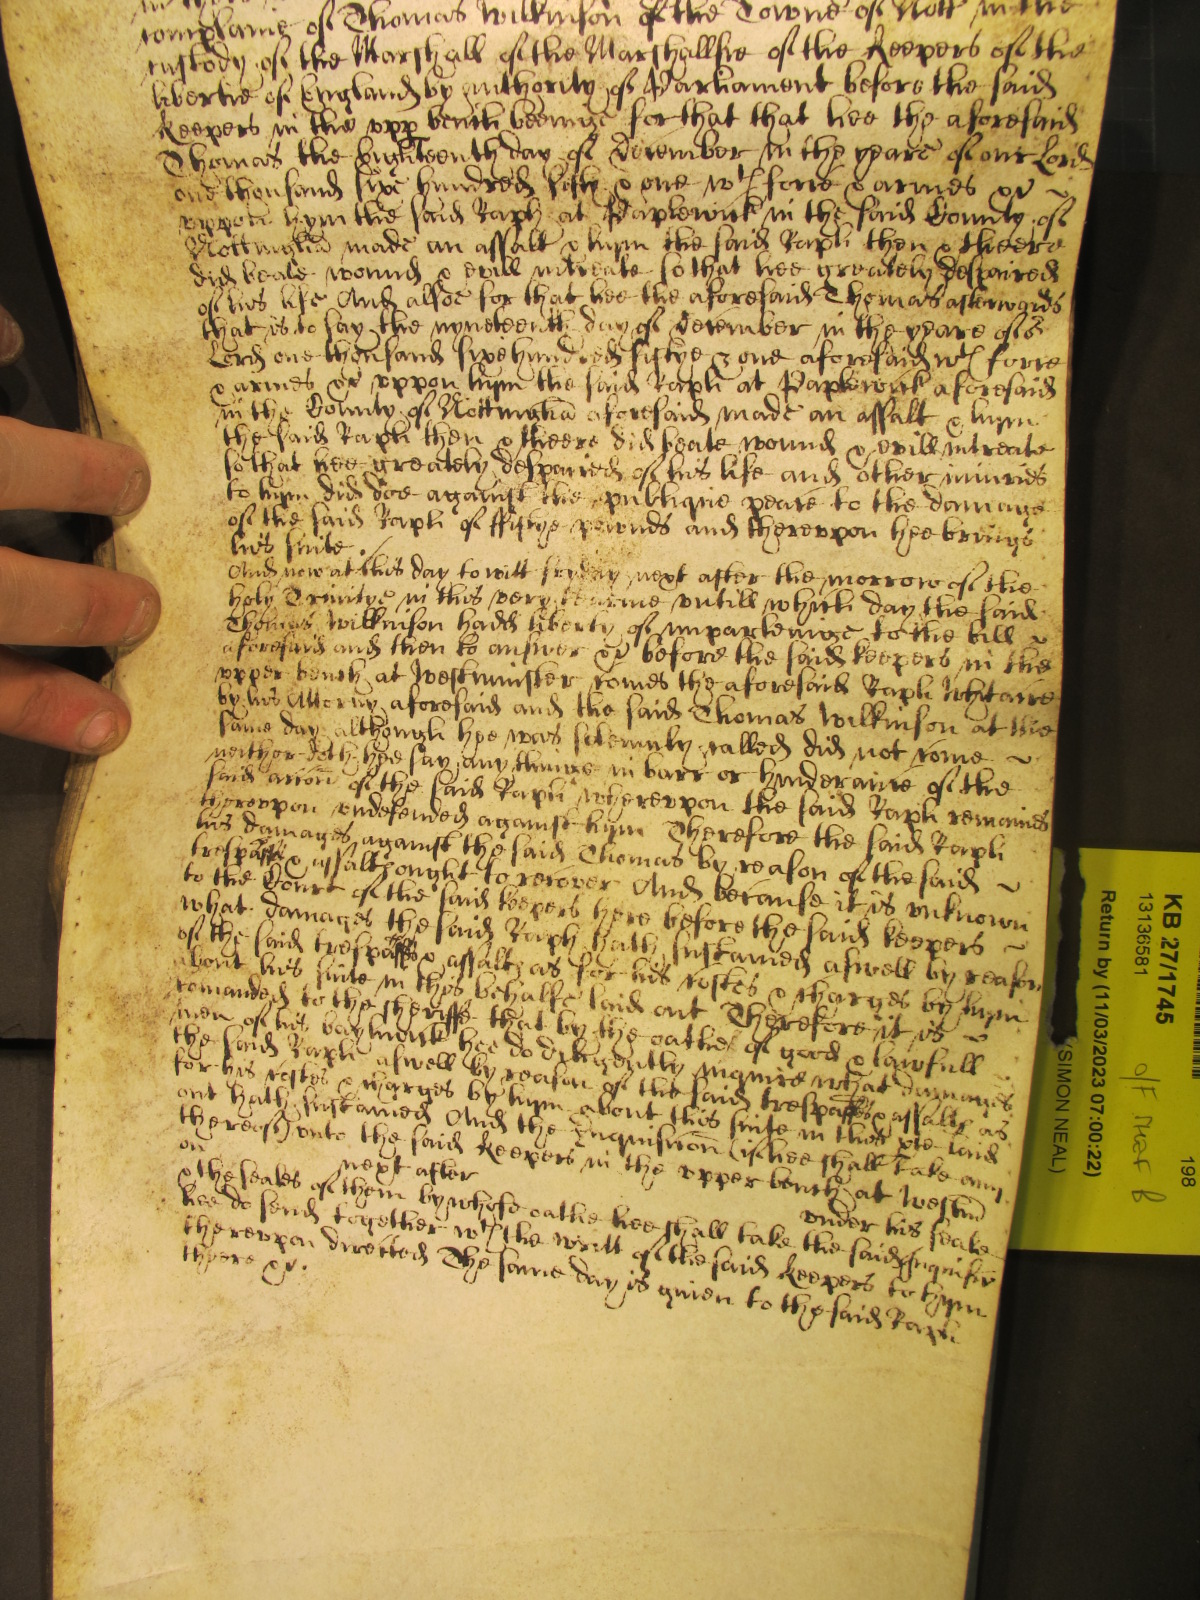 complaine of Thomas Wilkinson of the Towne of Nott in the
custody of the Marshall of the Marshallsie of the Keepers of the
libertie of England by authority of Parliament before the said
Keepers in the upp bench beeinge for that that hee the aforesaid
Thomas the Eighteenth day of December in the yeare of our Lord
one thousand sixe hundred fifty & one wth force & armes &c
uppon hym the said Raph at Paplewick in the said County of
Nottingha made an assalt & hym the said Raph then & theere
did beate wound & evill intreate so that hee greately despaired
of his life And alsoe for that hee the aforesaid Thomas afterwards
that is to say the nyneteenth day of December in the yeare of o
Lord one thousand sixe hundred fiftye & one aforesaid wth force
& armes &c uppon hym the said Raph at Paplewick aforesaid
in the County of Nottingha aforesaid made an assalt & hym
the said Raph then & theere did beate wound & evill intreate
so that hee greately despaired of his life and other iniuries
to hym did doe against the publique peace to the damage
of the said Raph of ffiftye pownds and thereuppon hee brings
his suite
And now at this day to witt fryday next after the morrow of the
holy Trinitye in this very tearme untill which day the said
Thomas Wilkinson hadd liberty of imparleinge to the bill
aforesaid and then to answer &c before the said keepers in the
upper bench at Westminster comes the aforesaid Raph Whitacre
by his Attorny aforesaid and the said Thomas Wilkinson at the
same day although hee was solemnly called did not come
neither doth hee say any thinge in barr or hinderance of the
said accon of the said Raph whereuppon the said Raph remaines
thereuppon undefended against hym Therefore the said Raph
his damages against the said Thomas by reason of the said
trespasses & assalts ought to recover And because it is unknown
to the Court of the said keepers here before the said keepers
what damages the said Raph hath sustained aswell by reason
of the said trespasses & assalts as for his costes & charges by hym
about his suite in this behalfe laid out Therefore it is
comanded to the sheriffe that by the oathes of good & lawfull
men of his baylywick hee do diligently inquire what damages
the said Raph aswell by reason of the said trespasses & assalts as
for his costes & charges by hym about this suite in this pte laid
out hath sustained And the Inquisicion (if hee shall take any
thereof) unto the said Keepers in the upper bench at Westm
on next after under his seale
& the seales of them by whose oathe hee shall take the said Inquisicon
hee do send together wth the writt of the said Keepers to hym
thereuppon directed The same day is given to the said Raph
theere &c.
KB 27/1745
13136581
Return by (11/03/2023 07:00:22)
(SIMON NEAL)
198